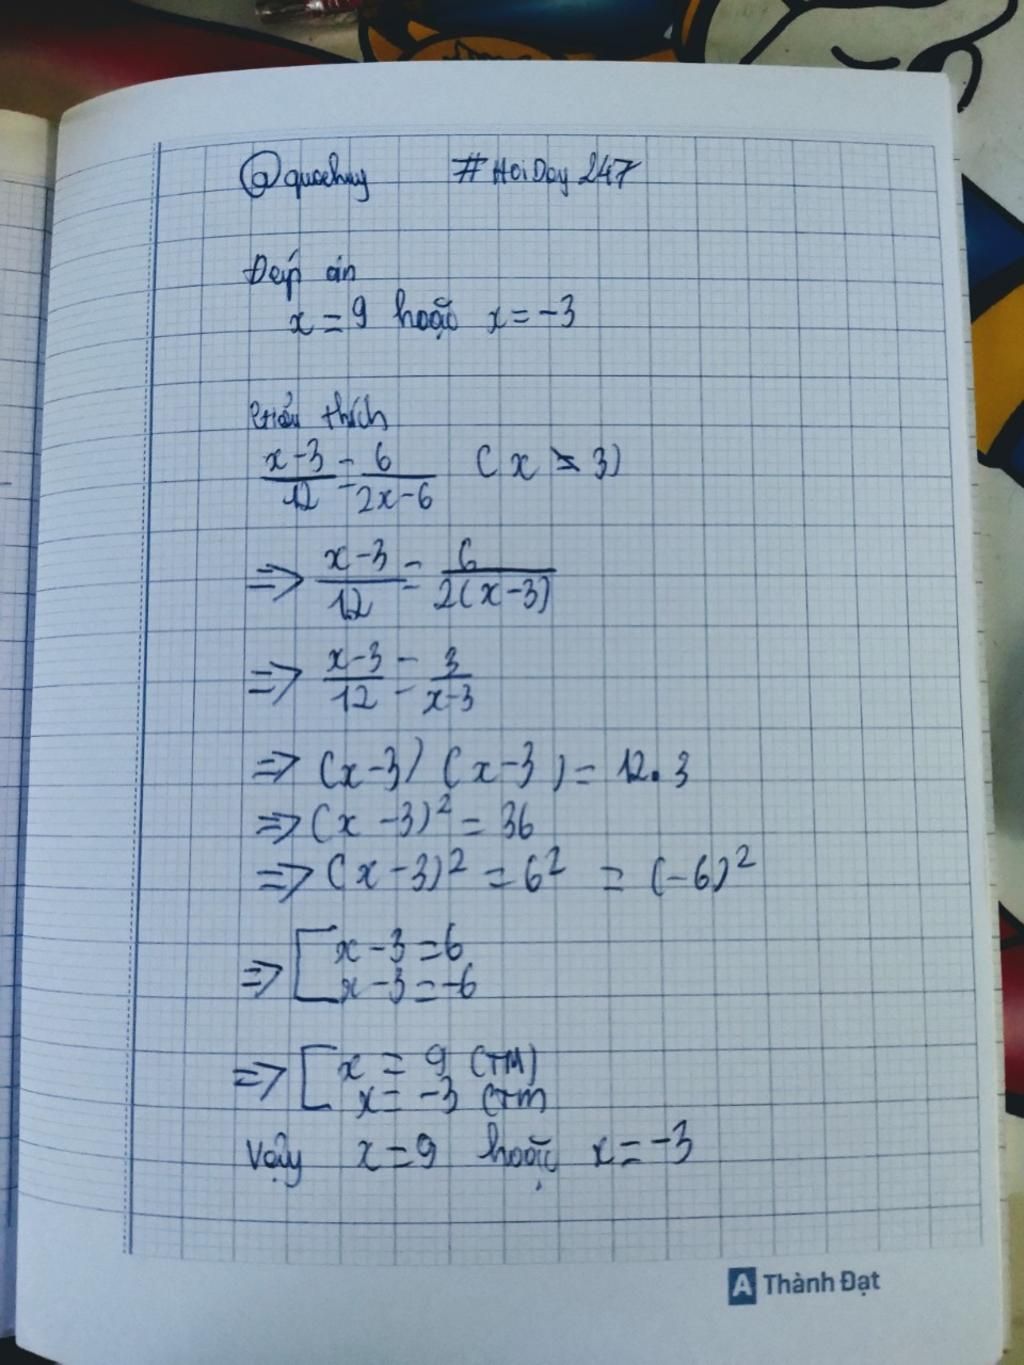 @quochuy #HoiDay247
Đáp án
x = 9 hoặc x = -3
Giải thích
x-3/12 = 6/2x-6 (x ≠ 3)
=> x-3/12 = 6/2(x-3)
=> x-3/12 = 3/x-3
=> (x-3)(x-3) = 12.3
=> (x-3)² = 36
=> (x-3)² = 6² = (-6)²
=> [x-3 = 6
x-3 = -6
=> [x = 9 (TM)
x = -3 (TM
Vậy x = 9 hoặc x = -3
A Thành Đạt